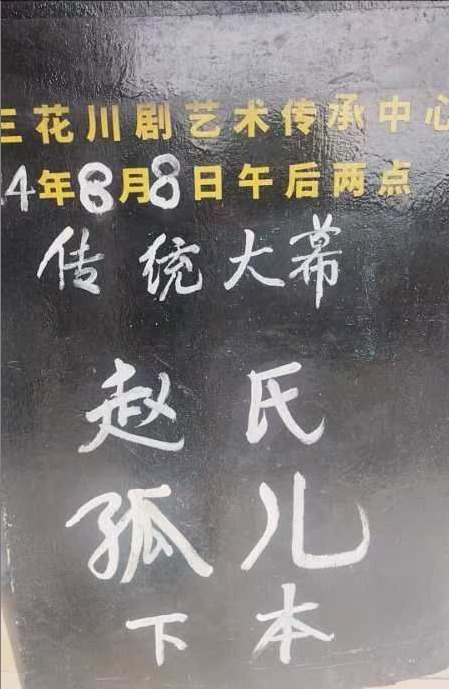 三花川剧艺术传承中心
4年8月8日午后两点
传统大幕
赵氏
孤儿
下本